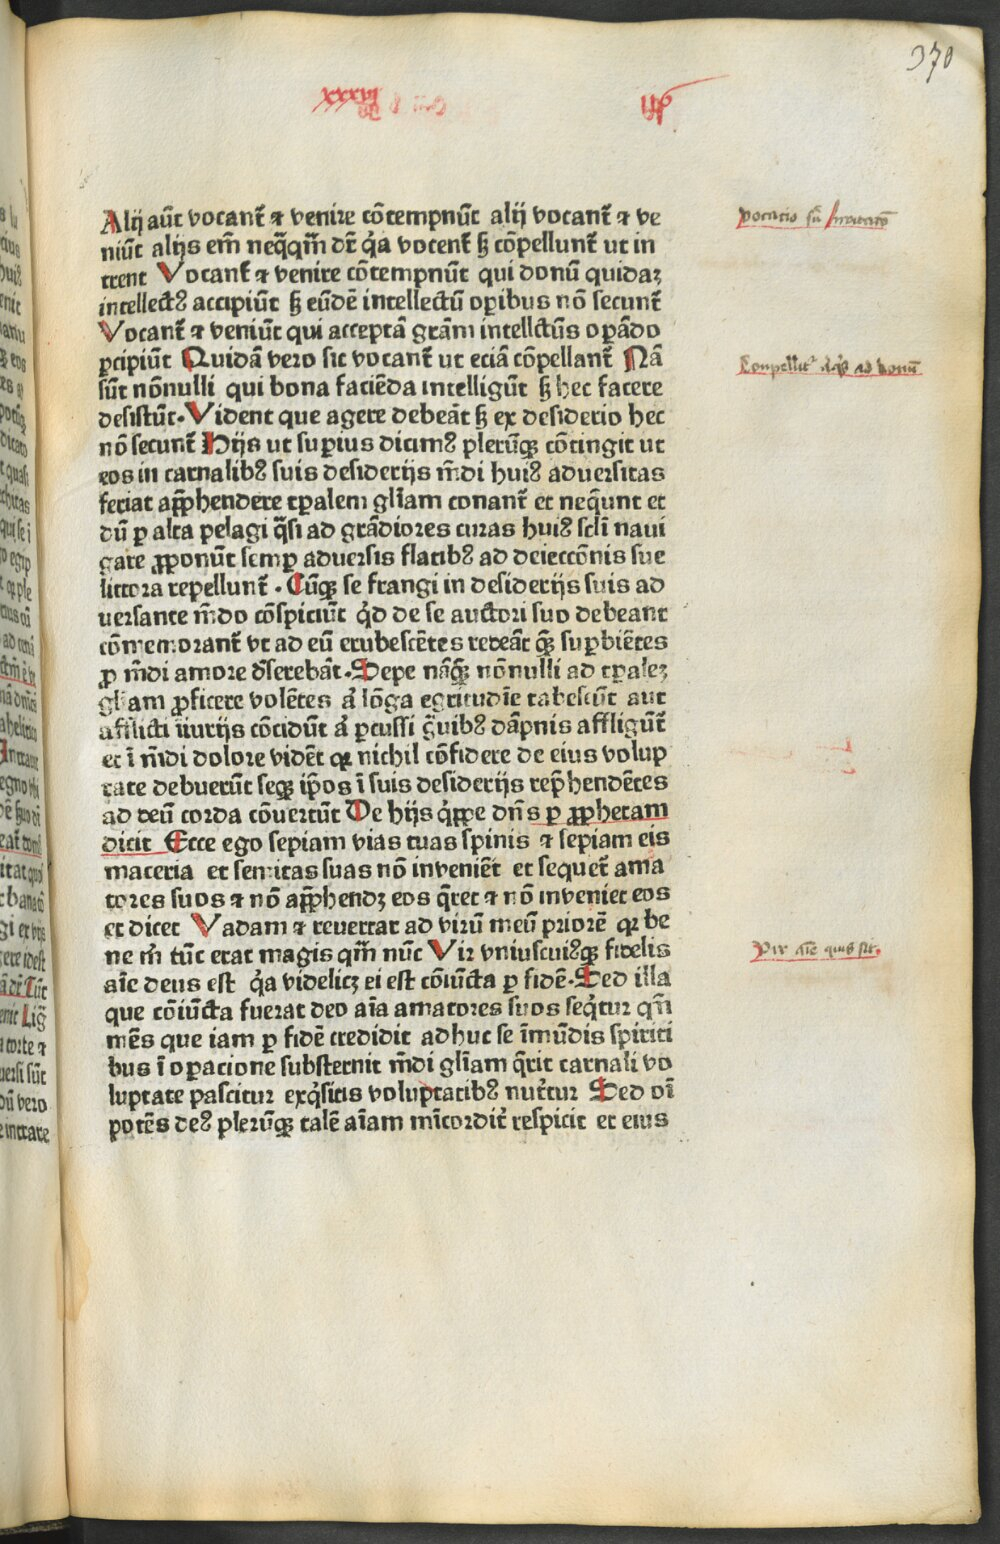 370
xxxvi
Alij aūt vocant̄ ⁊ venire cōtempnūt alij vocant̄ ⁊ ve
niūt alijs em̄ neq̄qm̄ dr̄ q̇a vocent̄ ꝫ cōpellunt̄ ut in
trent Vocant̄ ⁊ venire cōtempnūt qui donū quidaꝫ
intellectꝰ accipiūt ꝫ eūdē intellectū oꝑibus nō secunt̄
Vocant̄ ⁊ veniūt qui acceptā grām intellc̄tūs oꝑādo
ꝑcipiūt Quidā vero sic vocant̄ ut eciā cōpellant̄ Nā
sūt nōnulli qui bona faciēda intelligūt ꝫ hec facere
desistūt. Vident que agere debeāt ꝫ ex desiderio hec
nō secunt̄ Hijs ut suꝑius dicimꝰ plerūqꝫ cōtingit ut
eos in carnalibꝰ suis desiderijs m̄di huiꝰ aduersitas
feriat apꝑhendere tꝑalem gliam conant̄ et neq̄unt et
dū ꝑ alta pelagi q̄si ad grādiores curas huiꝰ scl̄i naui
gare ꝓponūt semꝑ aduersis flatibꝰ ad deieccōnis sue
littora repellunt̄ . Cūqꝫ se frangi in desiderijs suis ad
uersante m̄do cōspiciūt q̇d de se auctori suo debeant
cōmemorant̄ vt ad eū erubescētes redeāt qꝫ suꝑbiētes
ꝓ m̄di amore d̄serebāt. Sepe nāqꝫ nōnulli ad tꝑaleꝫ
gliam ꝓficere volētes aī lōga egritudīe tabescūt aut
afflicti īiurijs cōcidūt aī ꝑcussi g̈uibꝰ dāpnis affligūt̄
et ī m̄di dolore vidēt qꝛ nichil cōfidere de eius volup
tate debuerūt seqꝫ ip̄os ī suis desiderijs rep̄hendētes
ad deū corda cōuertūt De hijs q̇ꝑpe dn̄s ꝑ ꝓphetam
dicit Ecce ego sepiam vias tuas spinis ⁊ sepiam eis
maceria et semitas suas nō inueniēt et sequet̄ ama
tores suos ⁊ nō apꝑhendꝫ eos q̄ret ⁊ nō inueniet eos
et dicet Vadam ⁊ reuertar ad virū meū priorē qꝛ be
ne m̄ tūc erat magis qm̄ nūc Vir vniuscuiꝰqꝫ fidelis
aīe deus est q̇a videlicꝫ ei est cōiūcta ꝑ fidē. Sed illa
que cōiūcta fuerat deo aīa amatores suos seq̇tur qn̄
mēs que iam ꝑ fidē credidit adhuc se īmūdis spiriti
bus ī oꝑacione substernit m̄di gliam q̄rit carnali vo
luptate pascitur exq̇sitis voluptatibꝰ nutr̄tur Sed oī
potēs deꝰ plerūqꝫ talē aīam mīcordit̄ respicit et eius
Vir aīe quis sit.